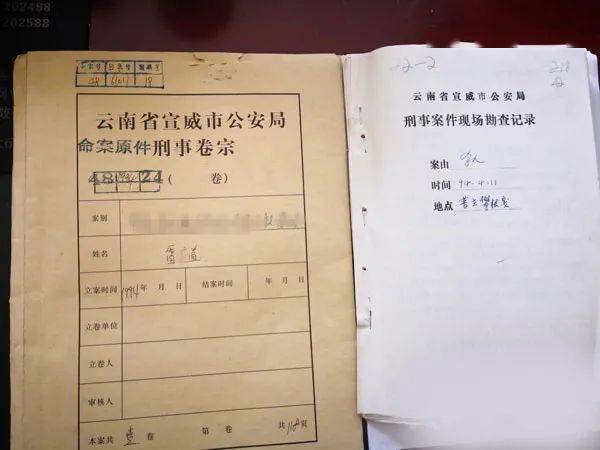 202488
202588
云南省宣威市公安局
命案原件 刑事卷宗
( 卷)
案别
姓名
立案时间 1994年 月 日 结案时间 年 月 日
立卷单位
立卷人
审核人
本案共 壹 卷 第 卷 共 页
-2-2
云南省宣威市公安局
刑事案件现场勘查记录
案由 杀人
时间 94.4.11
地点